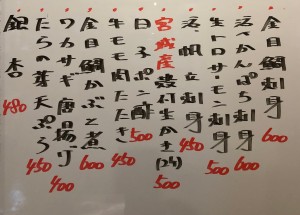 金目鯛刺身 600
活〆かんぱち刺身 600
生トロサーモン刺身 500
活〆帆立刺身 450
宮城産殻付生かき(2ヶ) 500
白子ポン酢 500
牛モモ肉たたき 450
金目鯛かぶと煮 600
ワカサギ唐揚げ 400
たらの芽天ぷら 450
銀杏 480